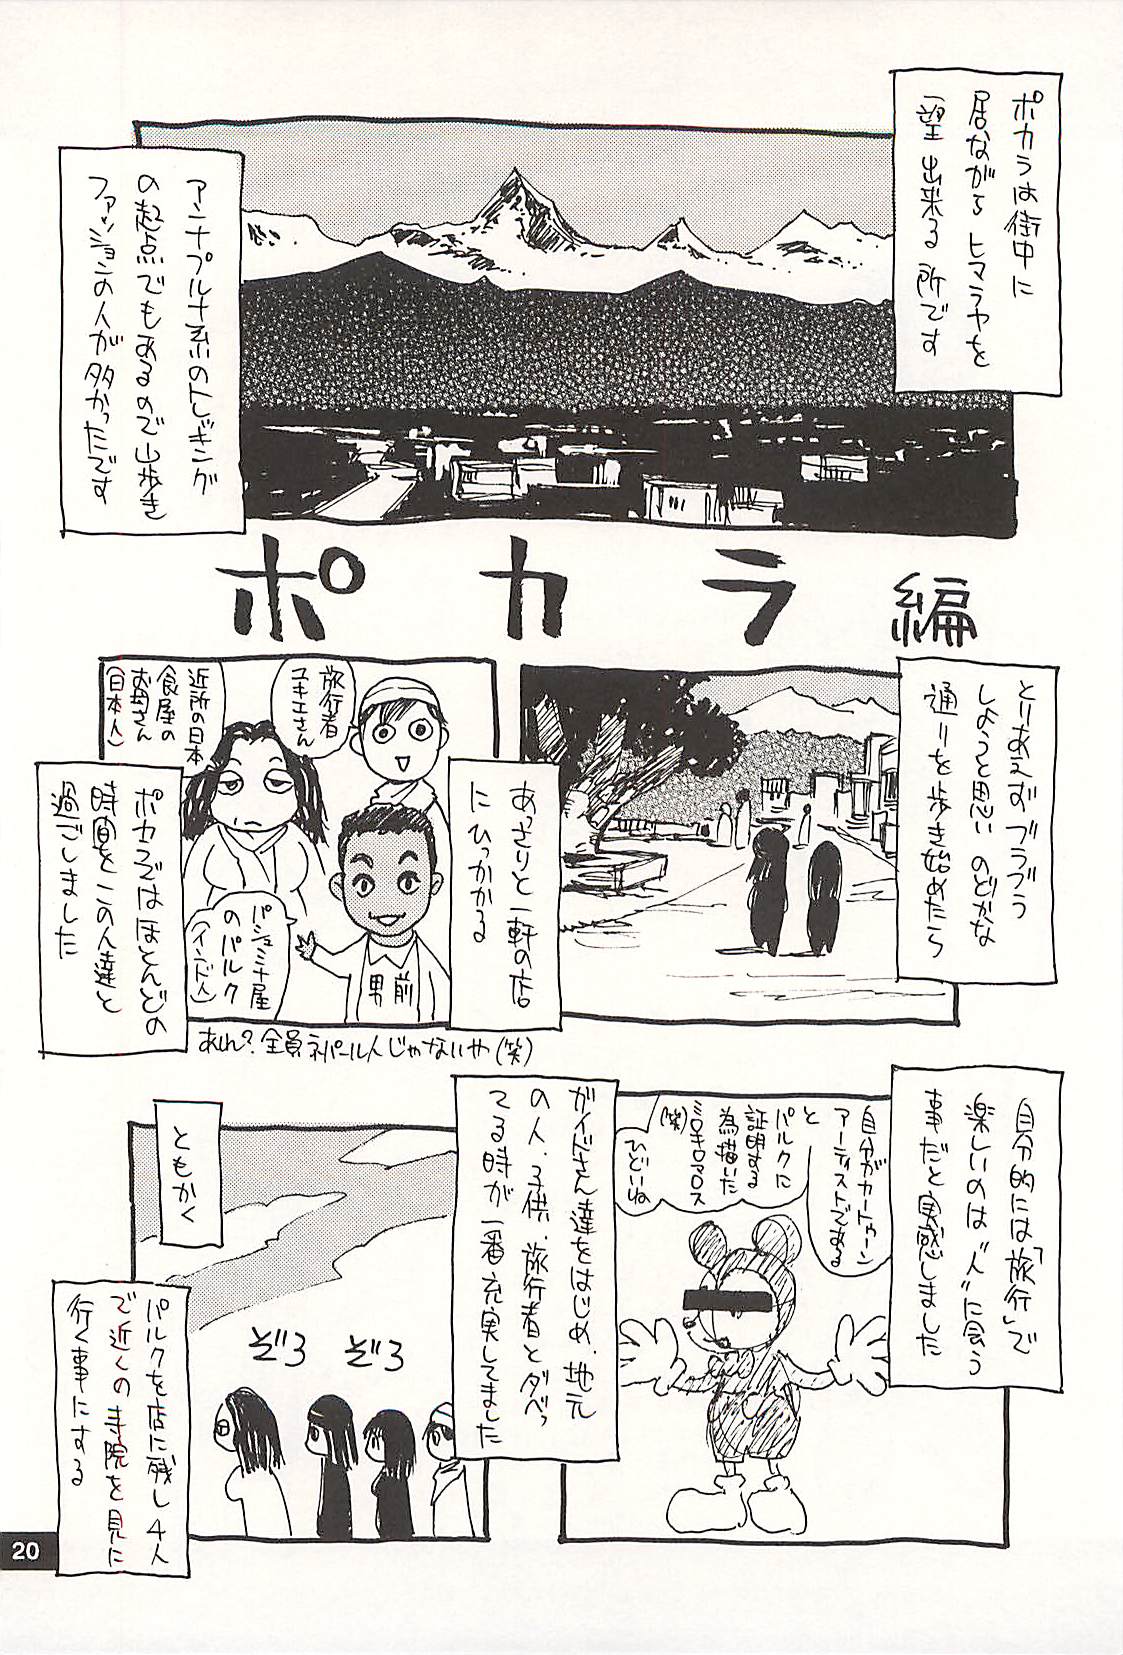 ポカラは街中に
居ながらヒマラヤを
一望出来る所です
アンナプルナ系のトレッキング
の起点でもあるので山歩き
ファッションの人が多かったです
ポカラ編
とりあえずブラブラ
しようと思いのどかな
通りを歩き始めたら
あっさりと一軒の店
にひっかかる
旅行者
ユキエさん
近所の日本
食屋の
お母さん
(日本人)
パシュミナ屋
のパルク
(インド人)
男前
ポカラではほとんどの
時間をこの人達と
過ごしました
あれ?全員ネパール人じゃないや(笑)
自分的には「旅行」で
楽しいのは“人”に会う
事だと実感しました
自分がカートゥーン
アーティストである
と
パルクに
証明する
為描いた
ミロキロマロス
(笑)
ひどいね
ガイドさん達をはじめ、地元
の人、子供、旅行者とダベっ
てる時が一番充実してました
ともかく
ぞろ
ぞろ
パルクを店に残し4人
で近くの寺院を見に
行く事にする
20